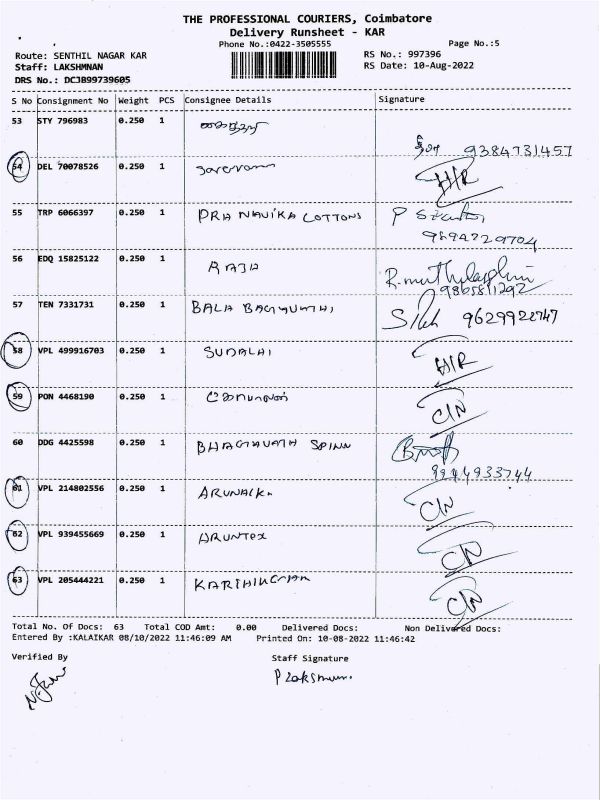 THE PROFESSIONAL COURIERS, Coimbatore
Delivery Runsheet - KAR
Phone No.:0422-3505555
Page No.:5
Route: SENTHIL NAGAR KAR
RS No.: 997396
Staff: LAKSHMNAN
RS Date: 10-Aug-2022
DRS No.: DCJB99739605
S No Consignment No Weight PCS Consignee Details Signature
53 STY 796983 0.250 1
9384731457
54 DEL 70078526 0.250 1 H/R
55 TRP 6066397 0.250 1 PRANAVIKA COTTONS
56 EDQ 15825122 0.250 1 RAJA
R.muthulaxhmi
9865811292
57 TEN 7331731 0.250 1 9629922747
58 VPL 499916703 0.250 1 SUDALAI H/R
59 PON 4468190 0.250 1 C/N
60 DDG 4425598 0.250 1 SPINN
9944933744
61 VPL 214802556 0.250 1 C/N
62 VPL 939455669 0.250 1 ARUNTEX C/N
63 VPL 205444221 0.250 1 C/N
Total No. Of Docs: 63 Total COD Amt: 0.00 Delivered Docs: Non Delivered Docs:
Entered By :KALAIKAR 08/10/2022 11:46:09 AM Printed On: 10-08-2022 11:46:42
Verified By Staff Signature